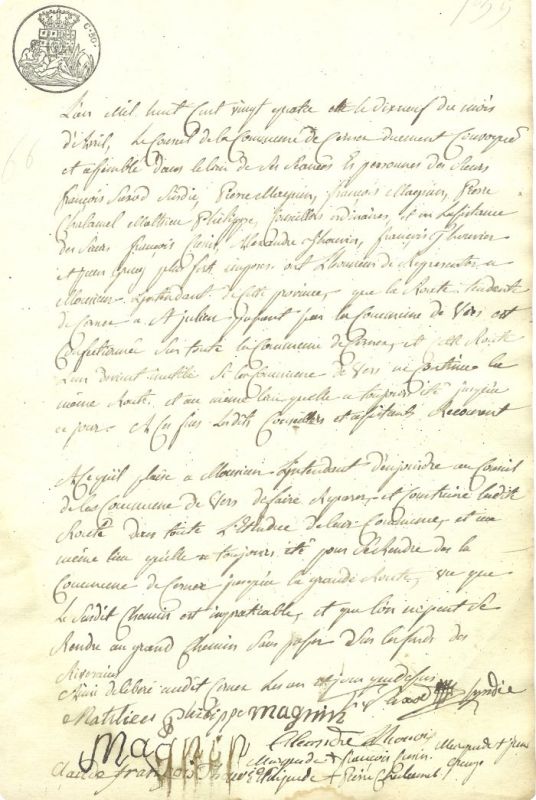 C. 50.
L'an mil huit Cent vingt quatre et le dixneuf du mois
d'Avril, Le Conseil de la Commune de Cernex duement Convoqué
et assemblé dans le lieu de ses Séances Es personnes des Sieurs
françois Sindic, Pierre Magnin, françois Magnin, Pierre
Chalamel Mathieu Philippe, Conseillers ordinaires, et en L'assistance
des Sieurs françois Alexandre Thouvier, françois Thouvier
et Jean plus forts imposés ont L'honneur de Représenter a
Monsieur L'intendant de cette province, que la Route tendente
de Cernex a St julien passant par la Commune de Vers est
Confectionnée Sur toute la Commune de Cernex, et cette Route
Leur devient inutile Si la Commune de Vers ne Continue la
même Route, et au même lieu quelle a toujours été jusqu'a
ce jour. A Ces fins Lesdits Conseillers et assistants Recourent
A Ce quil plaise a Monsieur L'intendant d'enjoindre au Conseil
de la Commune de Vers de faire Reparer, et Construire ladite
Route dans toute L'Etendue de leur Commune, et au
même lieu quelle a toujours été pour déscendre des la
Commune de Cernex jusqu'a la grande Route, vu que
Le Susdit Chemin est impraticable, et que lon ne peut se
Rendre au grand Chemin Sans passer Sur les fonds des
Riverains
Ainsi deliberé audit Cernex Les an et jour que dessus
Sindic
Mathieu philippe magnin
Alexandre Thouvier Marque de + jean
MAGNIN Marque de + françois
Claude françois Thouvier Marque de + Pierre Chalamel